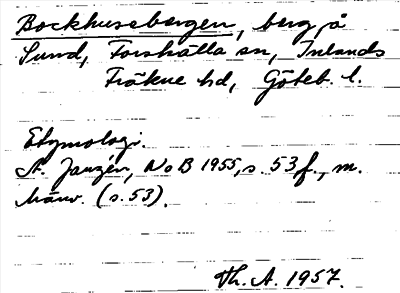 Bockhusebergen, berg å
Sund, Forshälla sn, Inlands
Fräkne hd, Göteb. l.
Etymologi.
A. Janzén, NoB 1955, s. 53 f., m.
hänv. (s. 53).
Th. A. 1957.